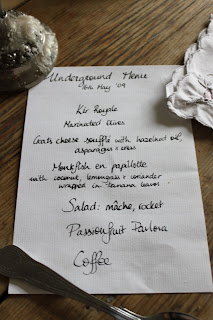 Underground Menu
16th May '09
Kir Royale
Marinated olives
Goats cheese soufflé with hazelnut oil,
asparagus & cress
Monkfish en papillotte
with coconut, lemongrass & coriander
wrapped in banana leaves
Salad: mâche, rocket
Passionfruit Pavlova
Coffee